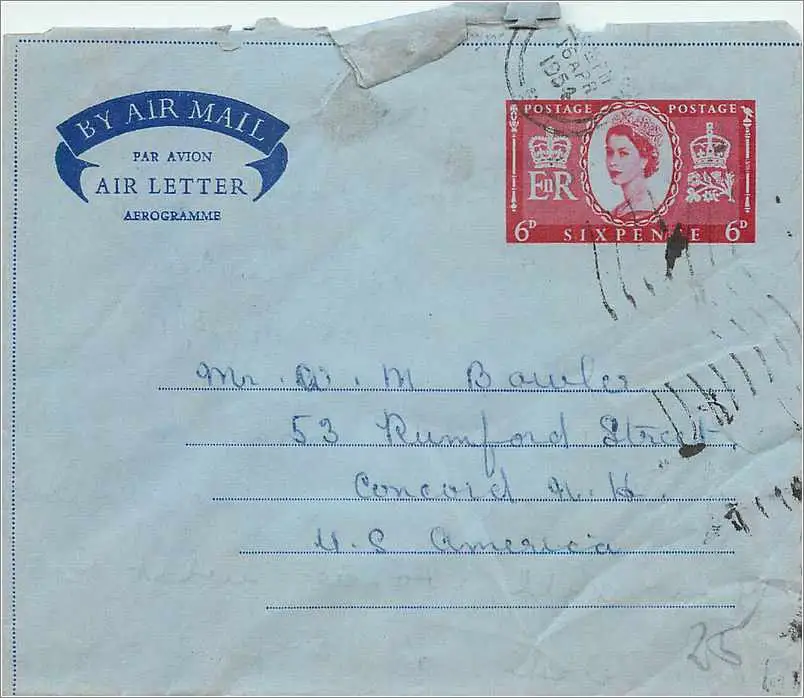 16 APR
1954
BY AIR MAIL
PAR AVION
AIR LETTER
AEROGRAMME
POSTAGE POSTAGE
E II R
6D SIXPENCE 6D
Mr. W. M Bowler
53 Rumford Street
Concord N. H.
U.S America
25